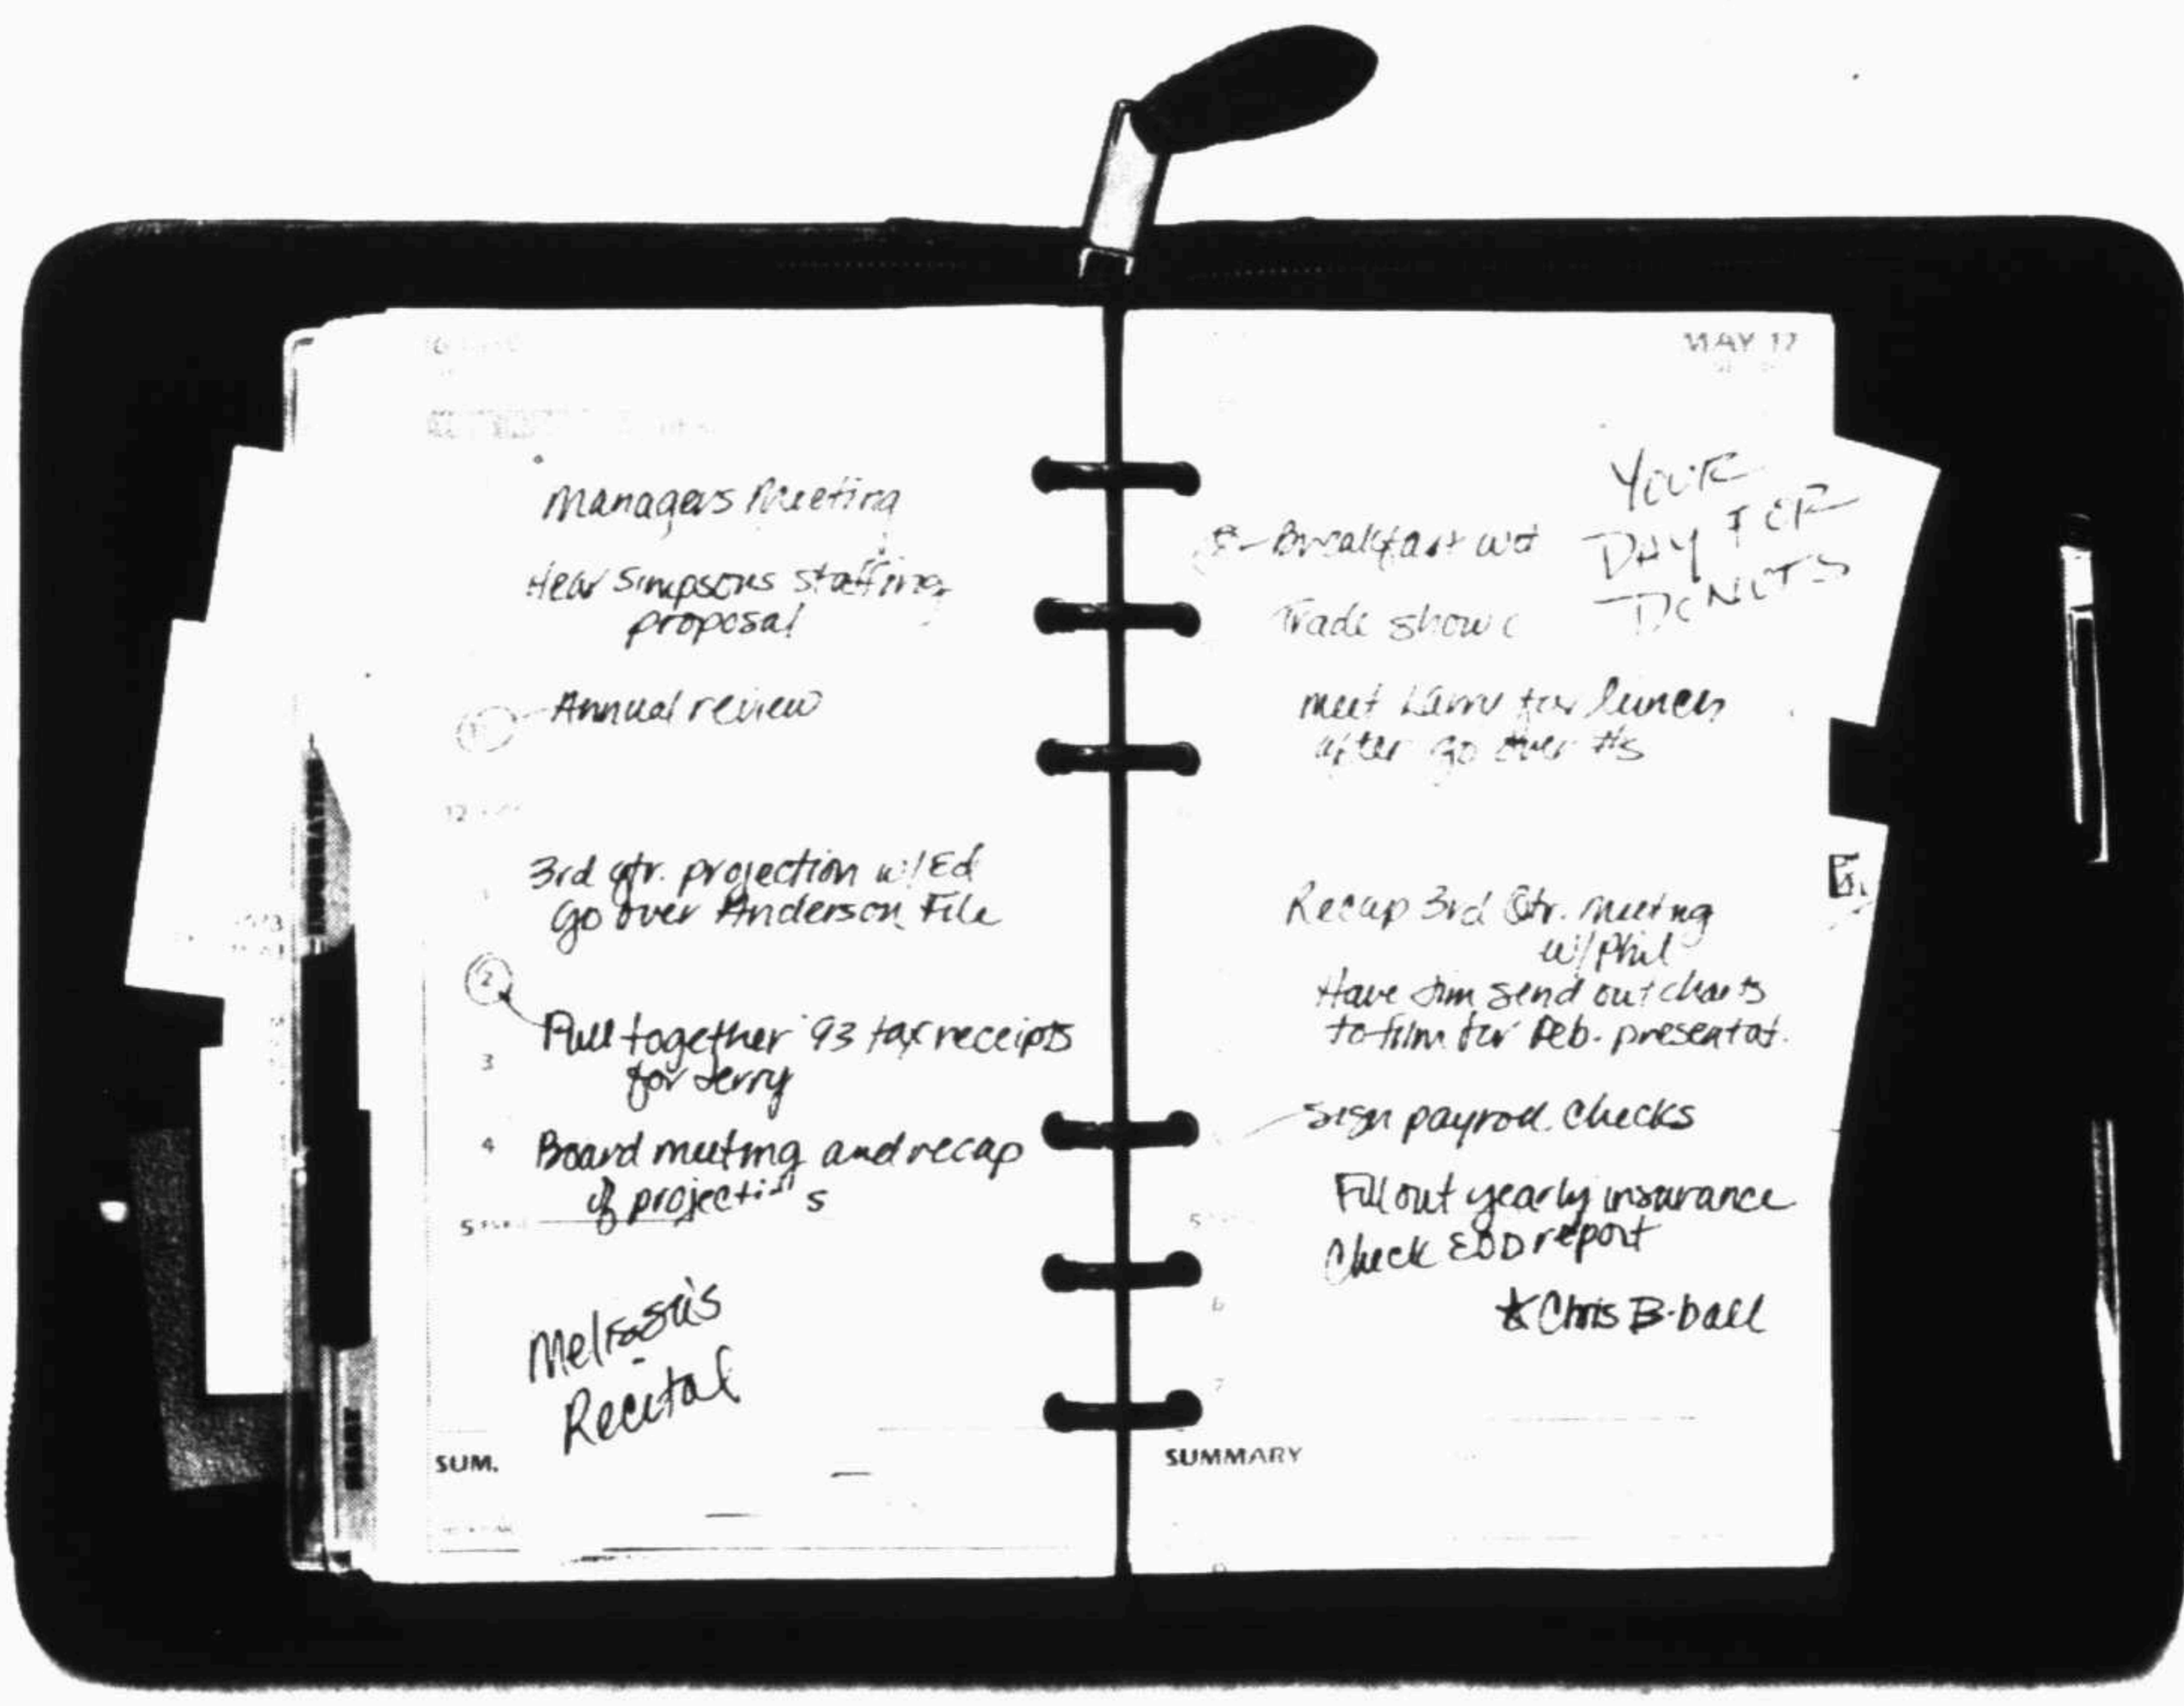 Managers Meeting
Hear Simpsons staffing
proposal
Annual review
12
3rd qtr. projection w/Ed
Go over Anderson File
2
Pull together '93 tax receipts
3
for Jerry
4 Board meeting and recap
of projections
5
Melissa's
Recital
SUM.
MAY 17
YOUR
DAY FOR
DONUTS
8-Breakfast
Trade show
meet Larry for lunch
after go over #s
Recap 3rd Qtr. Meeting
w/Phil
Have Jim send out charts
to film for Deb. presentat.
Sign payroll checks
Fill out yearly insurance
5
Check EDD report
6
☆Chris B-ball
7
SUMMARY